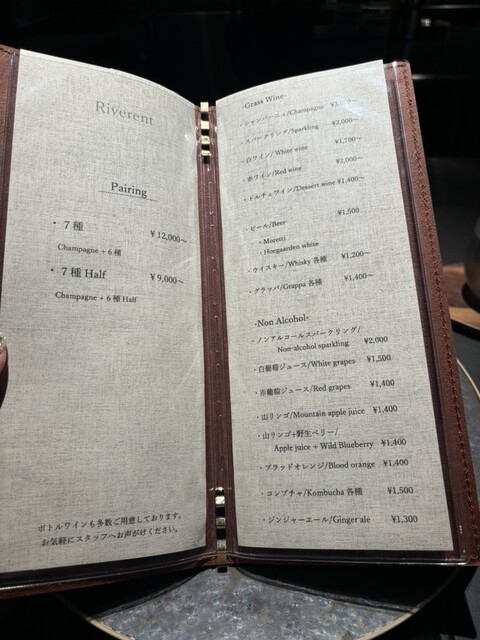 Riverent
Pairing
・7種 ￥12,000〜
Champagne + 6種
・7種 Half ￥9,000〜
Champagne + 6種 Half
ボトルワインも多数ご用意しております。
お気軽にスタッフへお声がけください。
-Grass Wine-
・シャンパーニュ/Champagne
・スパークリング/Sparkling ¥2,000〜
・白ワイン/White wine ¥1,700〜
・赤ワイン/Red wine ¥2,000〜
・ドルチェワイン/Dessert wine ¥1,400〜
・ビール/Beer ¥1,500
・Moretti
・Hoegaarden white
・ウイスキー/Whisky 各種 ¥1,200〜
・グラッパ/Grappa 各種 ¥1,400〜
-Non Alcohol-
・ノンアルコールスパークリング/
Non-alcohol sparkling ¥2,000
・白葡萄ジュース/White grapes ¥1,500
・赤葡萄ジュース/Red grapes ¥1,400
・山リンゴ/Mountain apple juice ¥1,400
・山リンゴ+野生ベリー/
Apple juice + Wild Blueberry ¥1,400
・ブラッドオレンジ/Blood orange ¥1,400
・コンブチャ/Kombucha 各種 ¥1,500
・ジンジャーエール/Ginger ale ¥1,300